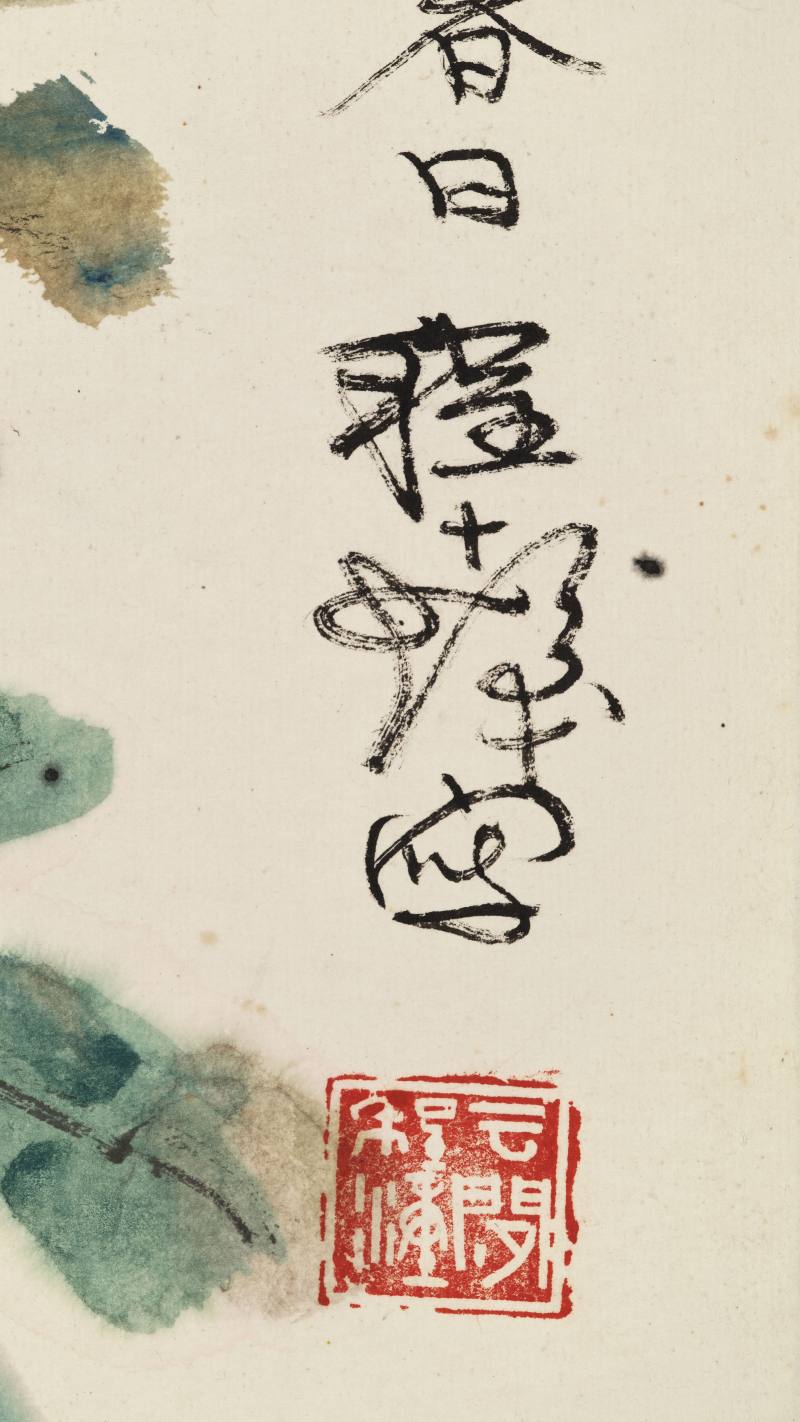 春日程十髮寫
云間
程潼